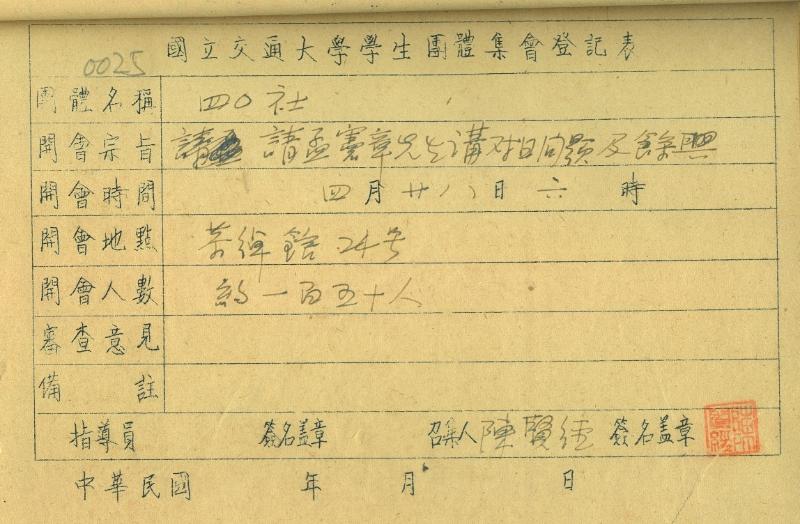 國立交通大學學生團體集會登記表
0025
團體名稱 四〇社
開會宗旨 請孟憲章先生講对日问题及餘興
開會時間 四月廿八日六時
開會地點 館24号
開會人數 約一百五十人
審查意見
備註
指導員 簽名盖章 召集人 陳賢 簽名盖章
中華民國 年 月 日